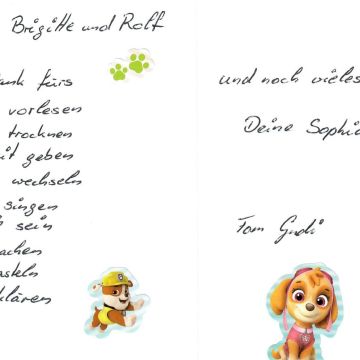 Brigitte und Rolf
ank fürs
vorlesen
trocknen
it geben
wechseln
singen
sein
achen
asteln
klären
und noch vieles
Deine Sophia
Tom